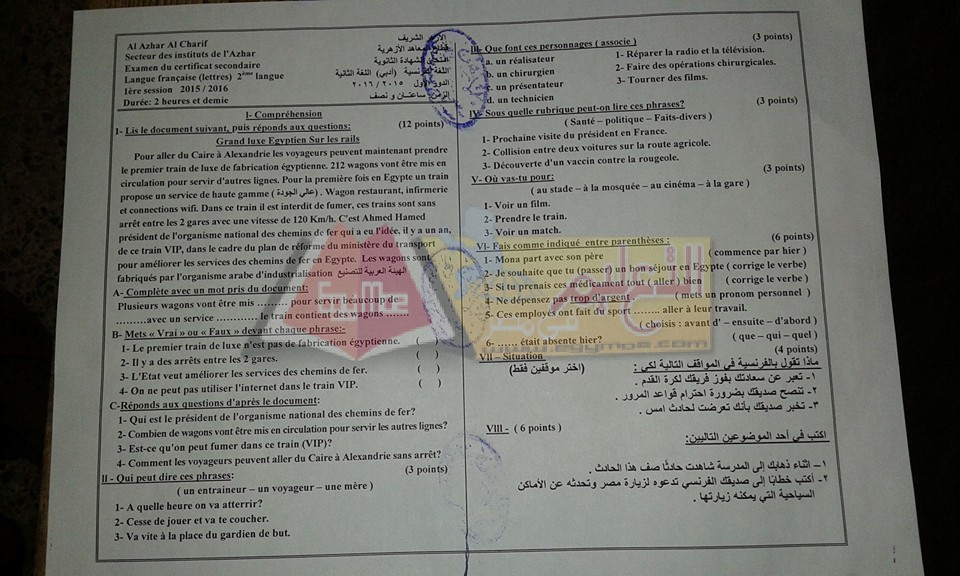 Al Azhar Al Charif
Secteur des instituts de l'Azhar
Examen du certificat secondaire
Langue française (lettres) 2ème langue
1ère session 2015 / 2016
Durée: 2 heures et demie
الشريف
المعاهد الأزهرية
الشهادة الثانوية
اللغة الفرنسية (أدبي) اللغة الثانية
الأول ٢٠١٥ / ٢٠١٦
ساعتان و نصف
I- Compréhension
1- Lis le document suivant, puis réponds aux questions: (12 points)
Grand luxe Egyptien Sur les rails
Pour aller du Caire à Alexandrie les voyageurs peuvent maintenant prendre
le premier train de luxe de fabrication égyptienne. 212 wagons vont être mis en
circulation pour servir d'autres lignes. Pour la première fois en Egypte un train
propose un service de haute gamme ( عالي الجودة ) . Wagon restaurant, infirmerie
et connections wifi. Dans ce train il est interdit de fumer, ces trains sont sans
arrêt entre les 2 gares avec une vitesse de 120 Km/h. C'est Ahmed Hamed
président de l'organisme national des chemins de fer qui a eu l'idée, il y a un an,
de ce train VIP, dans le cadre du plan de réforme du ministère du transport
pour améliorer les services des chemins de fer en Egypte. Les wagons sont
fabriqués par l'organisme arabe d'industrialisation الهيئة العربية للتصنيع
A- Complète avec un mot pris du document:
Plusieurs wagons vont être mis .......... pour servir beaucoup de
..........avec un service ............ le train contient des wagons .......
B- Mets « Vrai » ou « Faux » devant chaque phrase:-
1- Le premier train de luxe n'est pas de fabrication égyptienne. ( )
2- Il y a des arrêts entre les 2 gares. ( )
3- L'Etat veut améliorer les services des chemins de fer. ( )
4- On ne peut pas utiliser l'internet dans le train VIP. ( )
C-Réponds aux questions d'après le document:
1- Qui est le président de l'organisme national des chemins de fer?
2- Combien de wagons vont être mis en circulation pour servir les autres lignes?
3- Est-ce qu'on peut fumer dans ce train (VIP)?
4- Comment les voyageurs peuvent aller du Caire à Alexandrie sans arrêt?
II - Qui peut dire ces phrases: (3 points)
( un entraineur – un voyageur – une mère )
1- A quelle heure on va atterrir?
2- Cesse de jouer et va te coucher.
3- Va vite à la place du gardien de but.
III- Que font ces personnages ( associe ) (3 points)
a. un réalisateur 1- Réparer la radio et la télévision.
b. un chirurgien 2- Faire des opérations chirurgicales.
c. un présentateur 3- Tourner des films.
d. un technicien
IV- Sous quelle rubrique peut-on lire ces phrases? (3 points)
( Santé – politique – Faits-divers )
1- Prochaine visite du président en France.
2- Collision entre deux voitures sur la route agricole.
3- Découverte d'un vaccin contre la rougeole.
V- Où vas-tu pour: (3 points)
( au stade – à la mosquée – au cinéma – à la gare )
1- Voir un film.
2- Prendre le train.
3- Voir un match.
VI- Fais comme indiqué entre parenthèses : (6 points)
1- Mona part avec son père ( commence par hier )
2- Je souhaite que tu (passer) un bon séjour en Egypte ( corrige le verbe)
3- Si tu prenais ces médicament tout ( aller ) bien ( corrige le verbe)
4- Ne dépensez pas trop d'argent . ( mets un pronom personnel )
5- Ces employés ont fait du sport ........ aller à leur travail.
( choisis : avant d' – ensuite – d'abord )
6- ...... était absente hier? ( que – qui – quel )
VII – Situation (4 points)
ماذا تقول بالفرنسية في المواقف التالية لكي : (اختر موقفين فقط)
١- تعبر عن سعادتك بفوز فريقك لكرة القدم .
٢- تنصح صديقك بضرورة احترام قواعد المرور .
٣- تخبر صديقك بأنك تعرضت لحادث امس .
VIII - ( 6 points )
اكتب في أحد الموضوعين التاليين:
١- اثناء ذهابك إلى المدرسة شاهدت حادثا صف هذا الحادث .
٢- أكتب خطابا إلى صديقك الفرنسي تدعوه لزيارة مصر وتحدثه عن الأماكن
السياحية التي يمكنه زيارتها .
EyMe
www.egymoe.com